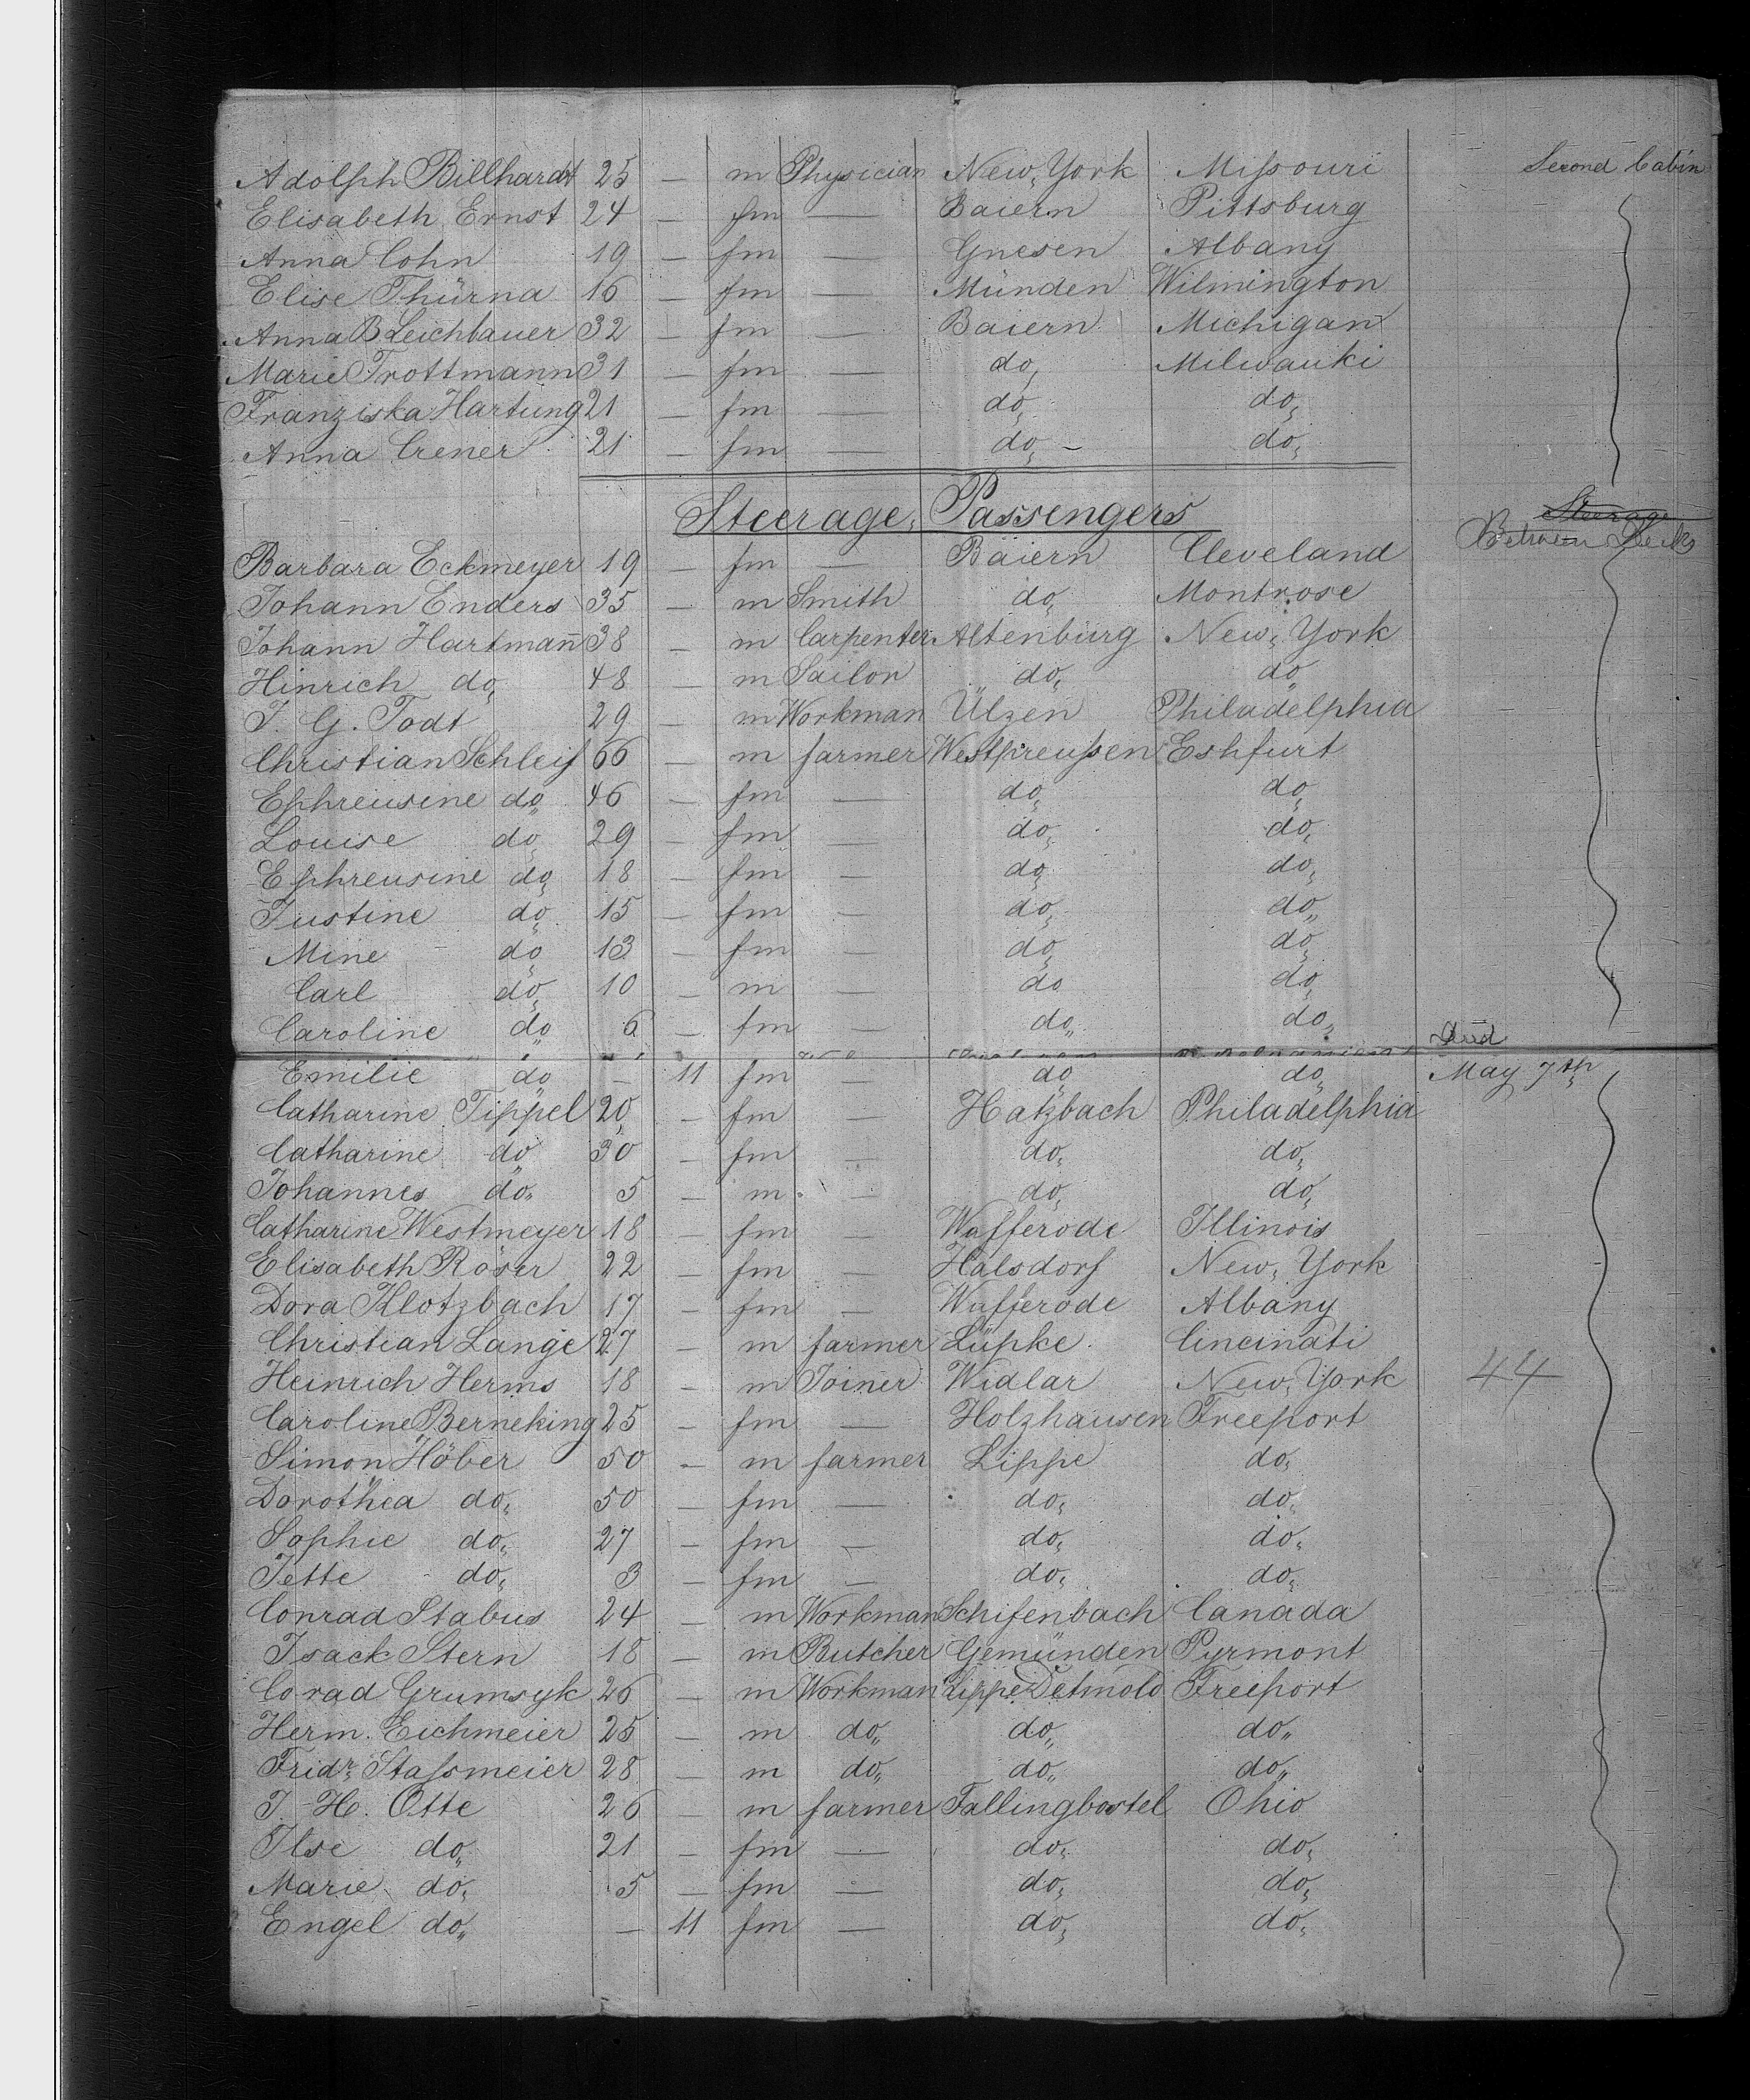 Adolph Billhardt 25 — m Physician New York Missouri Second Cabin
Elisabeth Ernst 24 — fm — Baiern Pittsburg
Anna Cohn 19 — fm — Gnesen Albany
Elise Thürna 16 — fm — Münden Wilmington
Anna B Leichbauer 32 — fm — Baiern Michigan
Marie Trottmann 31 — fm — do Milwauki
Franziska Hartung 21 — fm — do do
Anna Crener 21 — fm — do do
Steerage Passengers Steerage
Between Decks
Barbara Eckmeyer 19 — fm — Baiern Cleveland
Johann Enders 35 — m Smith do Montrose
Johann Hartmañ 38 — m Carpenter Altenburg New York
Hinrich do 48 — m Sailor do do
J. G. Todt 29 — m Workman Ülzen Philadelphia
Christian Schleif 66 — m farmer Westpreussen Eshfurt
Ephreusine do 46 — fm — do do
Louise do 29 — fm — do do
Ephreusine do 18 — fm — do do
Justine do 15 — fm — do do
Mine do 13 — fm — do do
Carl do 10 — m — do do
Caroline do 6 — fm — do do
Died
Emilie do — 11 fm — do do May 7th
Catharine Tippel 20 — fm — Hatzbach Philadelphia
Catharine do 30 — fm — do do
Johannes do 5 — m — do do
Catharine Westmeyer 18 — fm — Wafferode Illinois
Elisabeth Röser 22 — fm — Halsdorf New York
Dora Klotzbach 17 — fm — Wafferode Albany
Christian Lange 27 — m farmer Lüpke Cincinati
Heinrich Herms 18 — m Joiner Widlar New York 44
Caroline Berneking 25 — fm — Holzhausen Freeport
Simon Höber 50 — m farmer Lippe do
Dorothea do 50 — fm — do do
Sophie do 27 — fm — do do
Jette do 3 — fm — do do
Conrad Stabus 24 — m Workman Schifenbach Canada
Isack Stern 18 — m Butcher Gemünden Pyrmont
Corad Grumsyk 26 — m Workman Lippe Detmold Freeport
Herm. Eichmeier 25 — m do do do
Fridr. Stassmeier 28 — m do do do
J. H. Otte 26 — m farmer Fallingbostel Ohio
Ilse do 21 — fm — do do
Marie do 5 — fm — do do
Engel do — 11 fm — do do